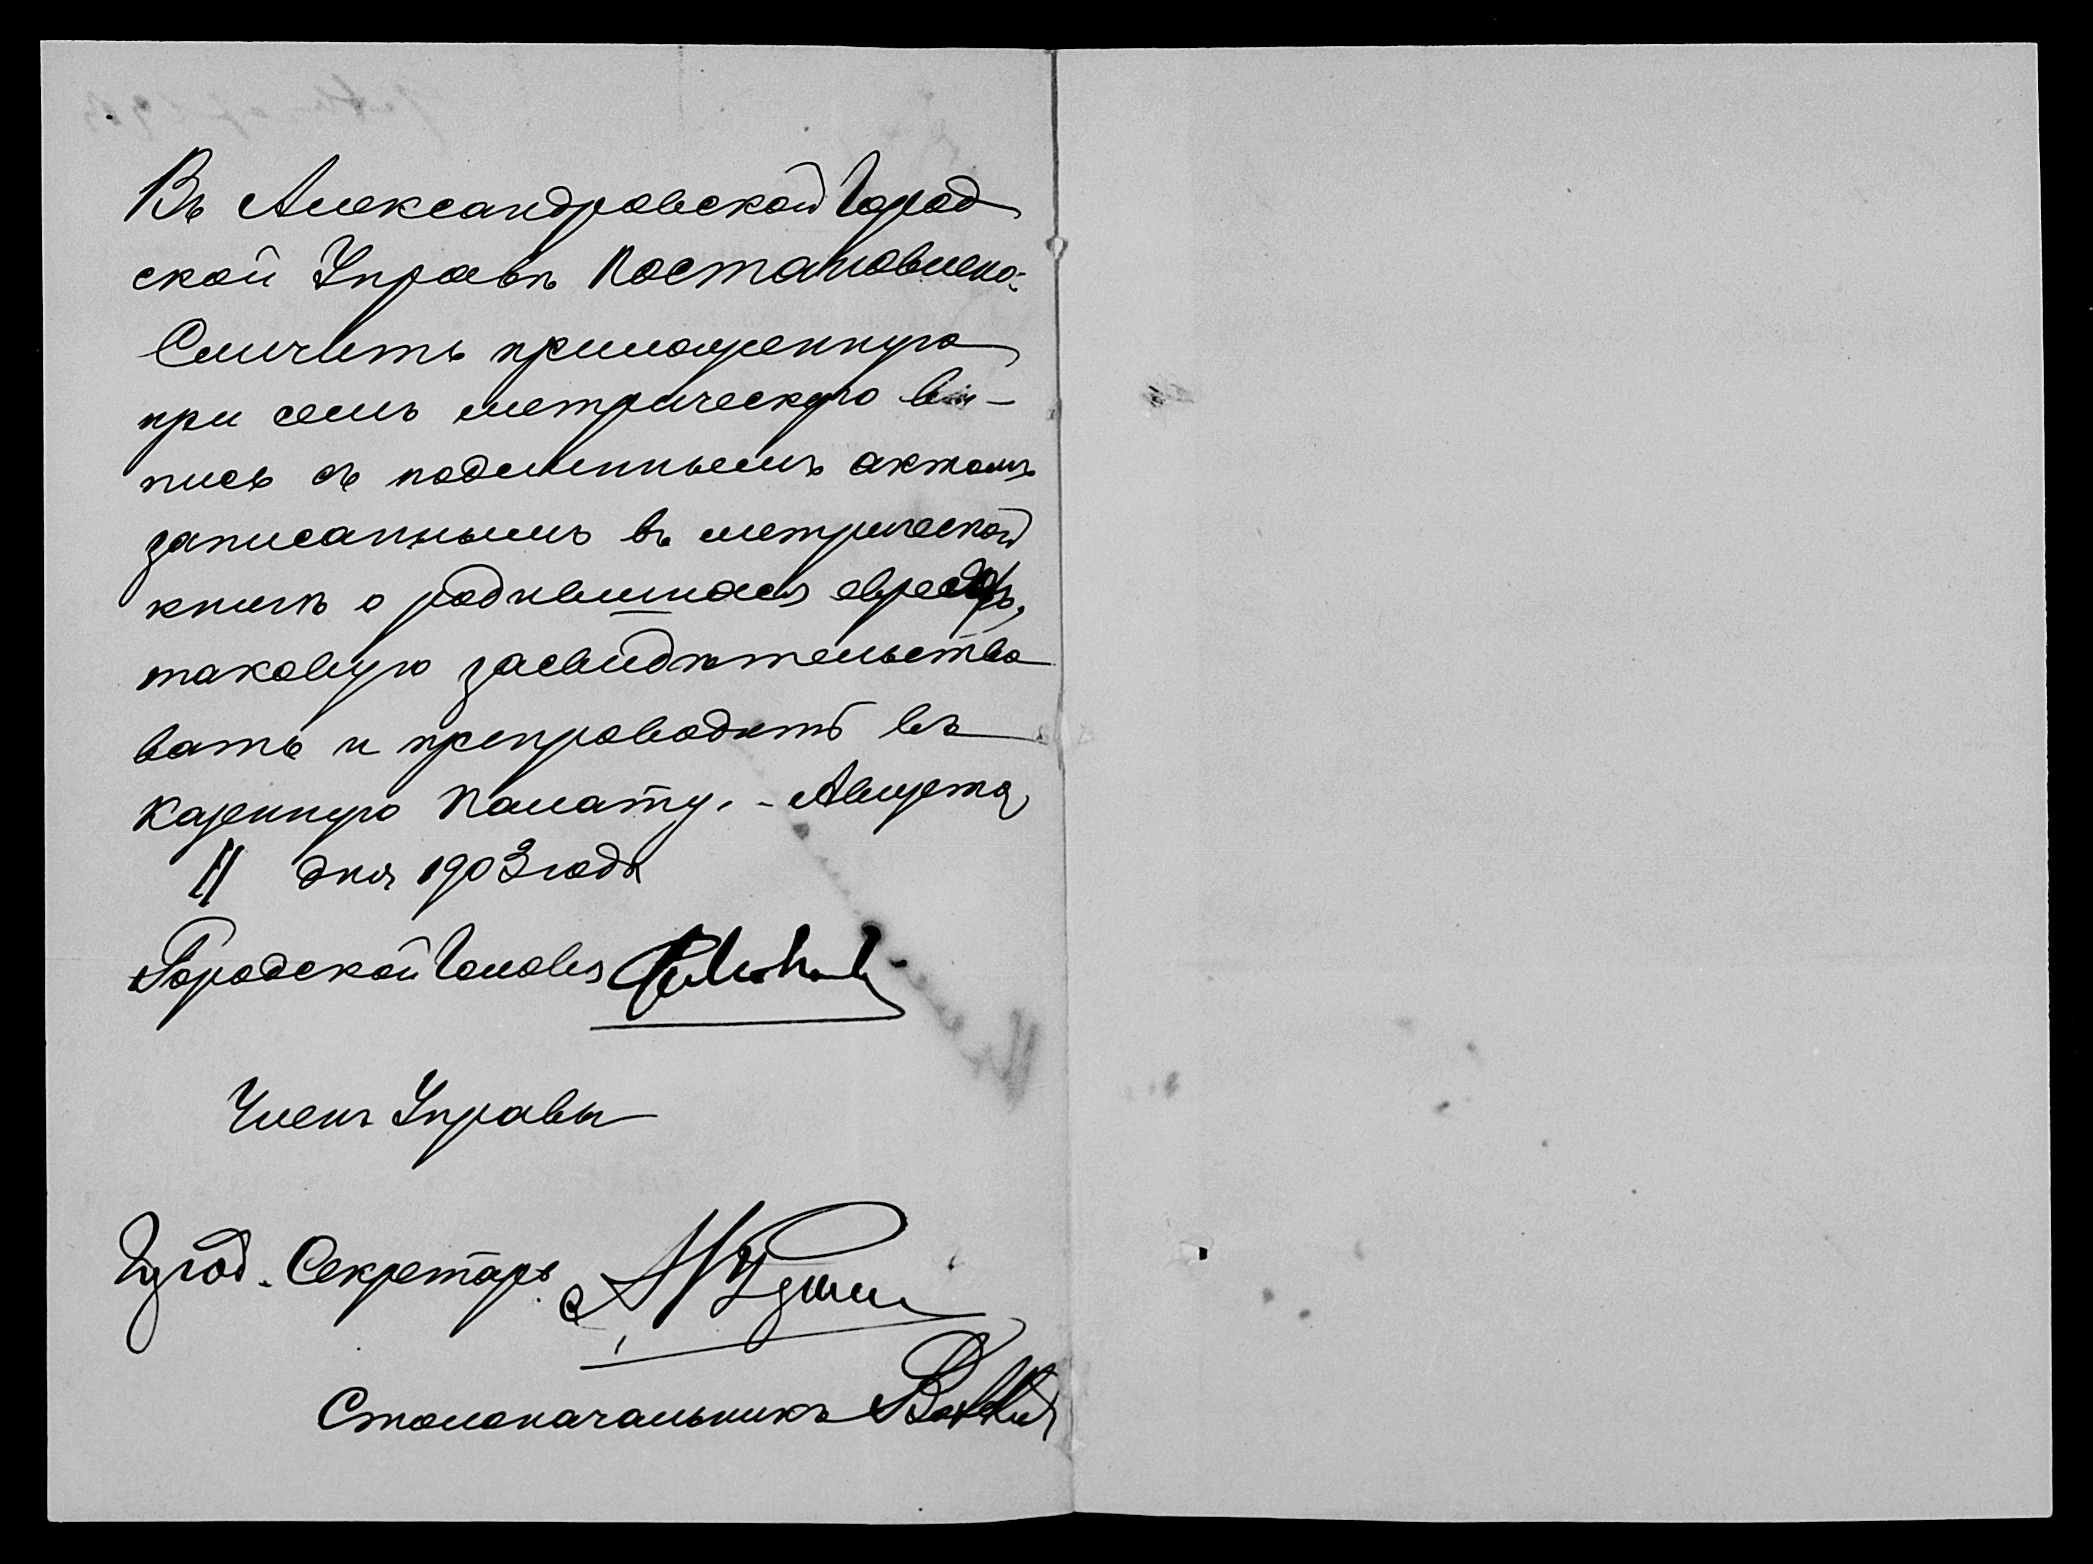 Въ Александровской Город
ской Управѣ Постановлено:
Сличить приложенную
при семъ метрическую вы-
пись съ подлиннымъ актомъ
записаннымъ въ метрической
книгѣ о родившихся евреяхъ,
таковую засвидѣтельство
вать и препроводить въ
Казенную Палату. - Августа
11 дня 1903 года
Городской Голова
Членъ Управы
Город. Секретарь
Столоначальникъ